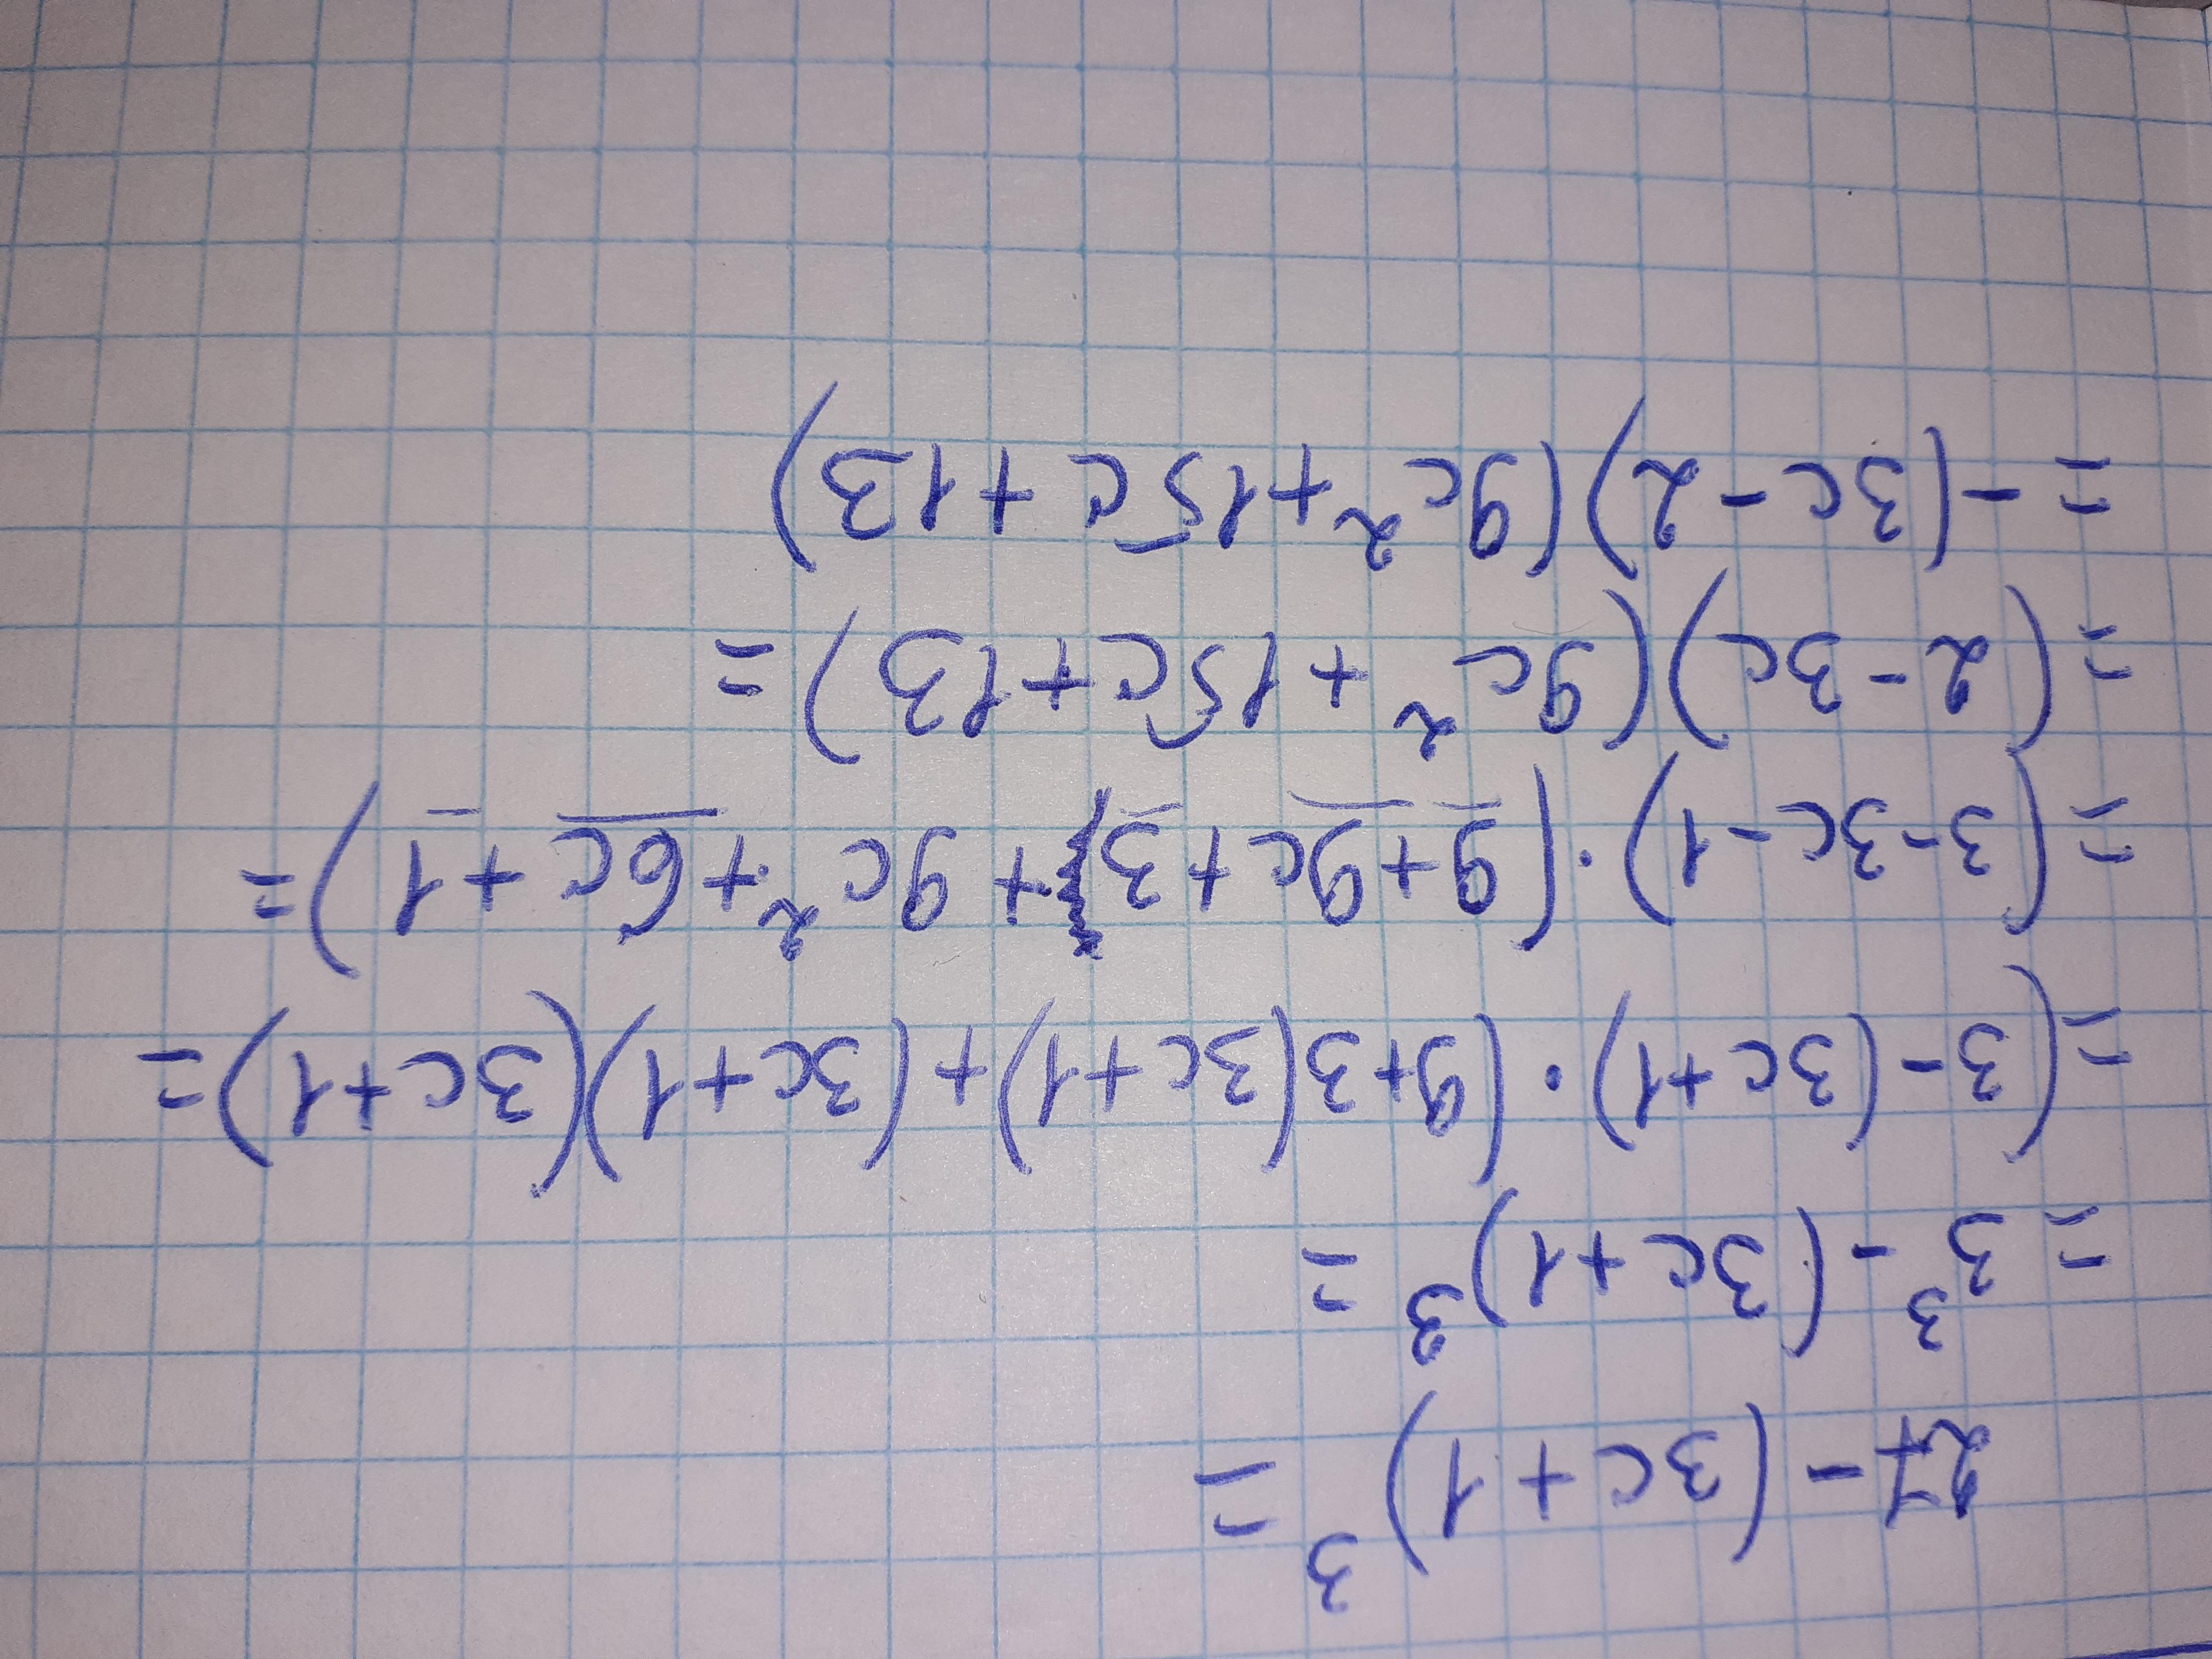 27-(3c+1)³=
=3³-(3c+1)³=
=(3-(3c+1)·(9+3(3c+1)+(3c+1)(3c+1)=
=(3-3c-1)·(9+9c+3+9c²+6c+1)=
=(2-3c)(9c²+15c+13)=
=-(3c-2)(9c²+15c+13)